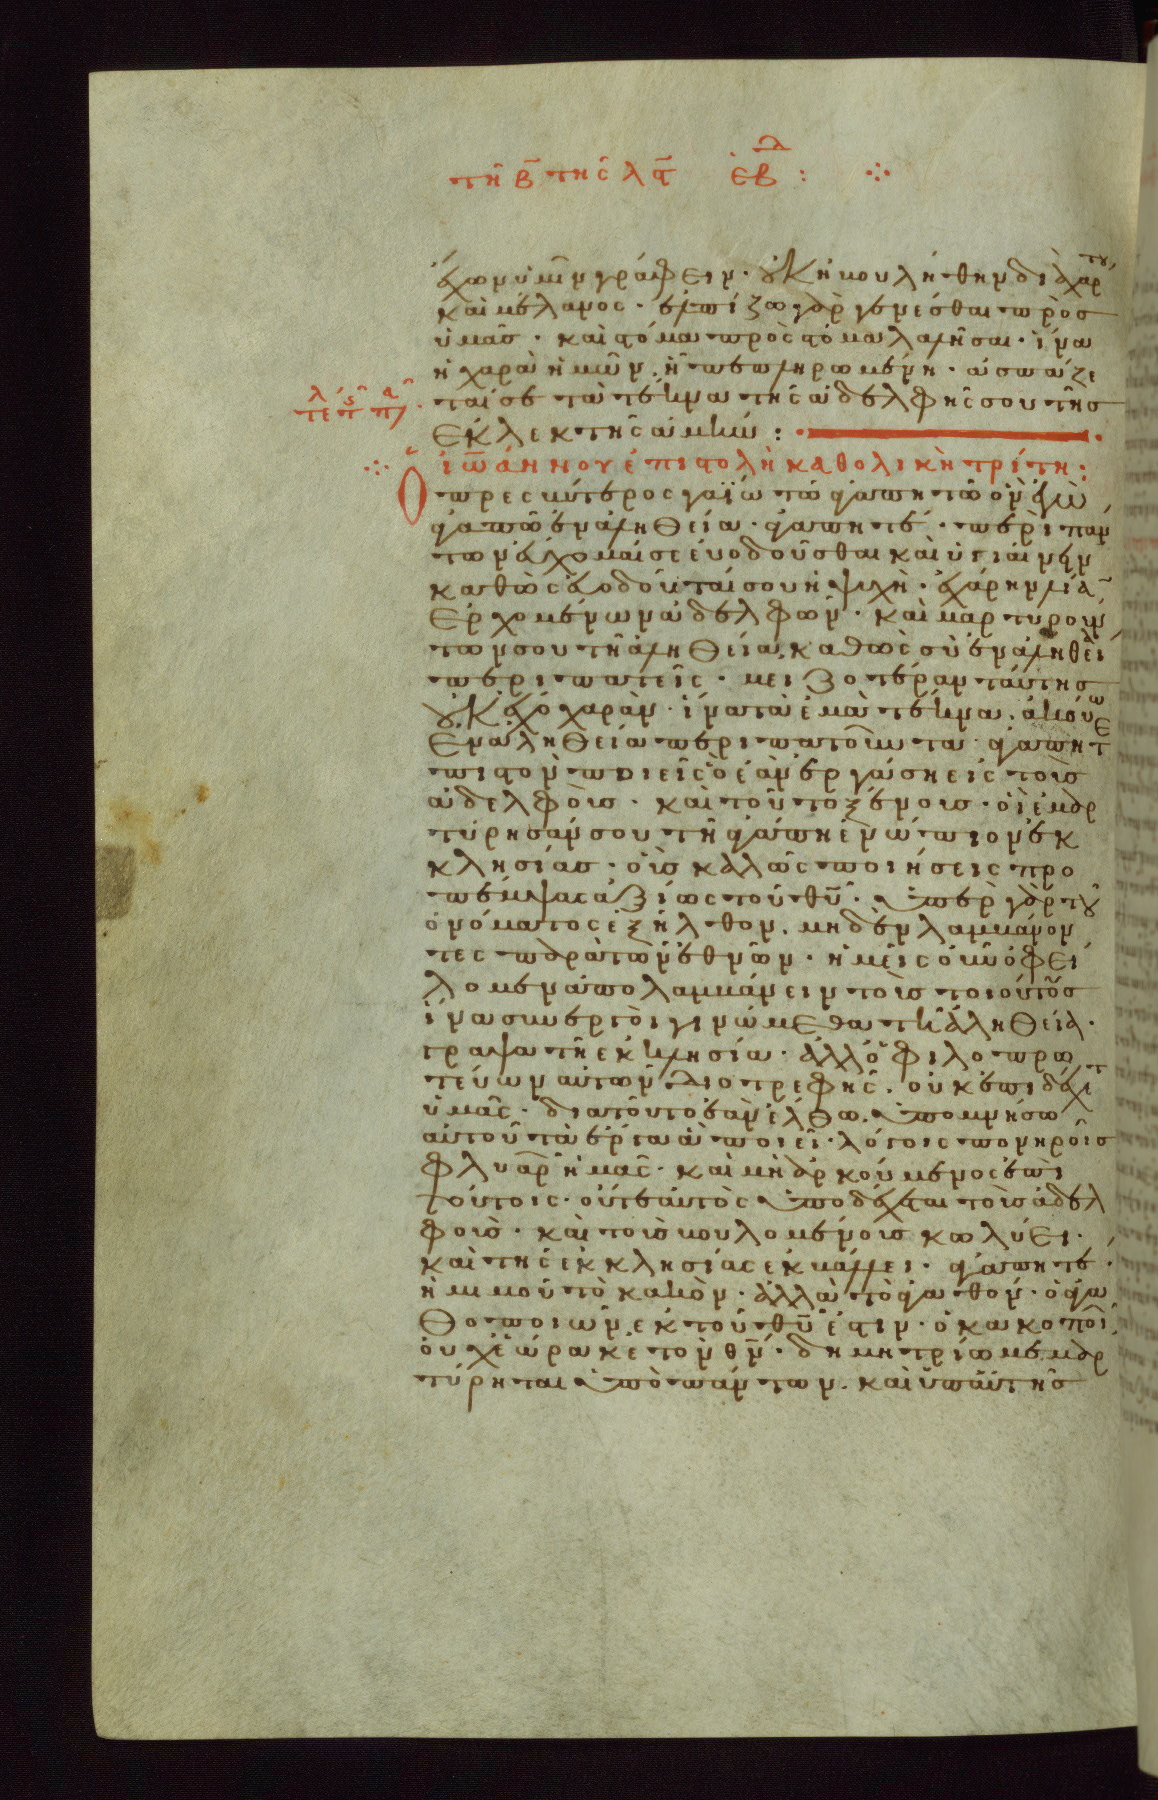 τῆ β̅ τῆς λϛ̅ ἑβδ :
ἔχων ὑμῖν γράφειν · οὐκ ἠβουλήθην διὰ χάρτου
καὶ μέλανος · ἐλπίζω γὰρ γενέσθαι πρὸς
ὑμᾶς · καὶ στόμα πρὸς στόμα λαλῆσαι · ἵνα
ἡ χαρὰ ἡμῶν ἦ πεπληρωμένη · ἀσπάζε
ταί σε τὰ τέκνα τῆς ἀδελφῆς σου τῆς
ἐκλεκτῆς ἀμήν :
ἰωάννου ἐπιστολὴ καθολικὴ τρίτη :
Ὁ πρεσβύτερος γαΐω τῶ ἀγαπητῶ ὃν ἐγὼ
ἀγαπῶ ἐν ἀληθεία · ἀγαπητέ · περὶ πάν
των εὔχομαί σε εὐοδοῦσθαι καὶ ὑγιαίνειν
καθὼς εὐοδοῦταί σου ἡ ψυχὴ · ἐχάρην λίαν
ἐρχομένων ἀδελφῶν · καὶ μαρτυρούν
των σου τῆ ἀληθεία, καθὼς σὺ ἐν ἀληθεία
περιπατεῖς · μειζοτέραν ταύτης
οὐκ ἔχω χαρὰν · ἵνα τὰ ἐμὰ τέκνα ἀκούω
ἐν ἀληθεία περιπατοῦντα · ἀγαπητέ
πιστὸν ποιεῖς ὃ ἐὰν ἐργάση εἰς τοὺς
ἀδελφοὺς · καὶ τοῦτο ξένους · οἳ ἐμαρ
τύρησάν σου τῆ ἀγάπη ἐνώπιον ἐκ
κλησίας · οὓς καλῶς ποιήσεις προ
πέμψας ἀξίως τοῦ θυ̅ · ὑπὲρ γὰρ τοῦ
ὀνόματος ἐξῆλθον · μηδὲν λαμβάνον
τες παρὰ τῶν ἐθνῶν · ἡμεῖς οὖν ὀφεί
λομεν ἀπολαμβάνειν τοὺς τοιούτους
ἵνα συνεργοὶ γινώμεθα τῆ ἀληθεία ·
ἔγραψα τῆ ἐκκλησία · ἀλλ' ὁ φιλοπρω
τεύων αὐτῶν διοτρεφὴς · οὐκ ἐπιδέχεται
ὑμᾶς · διατοῦτο ἐὰν ἔλθω ὑπομνήσω
αὐτοῦ τὰ ἔργα ἃ ποιεῖ · λόγοις πονηροῖς
φλυαρῶν ἡμᾶς · καὶ μὴ ἀρκούμενος ἐπὶ
τούτοις · οὔτε αὐτὸς ὑποδέχεται τοὺς ἀδελ
φοὺς · καὶ τοὺς βουλομένους κωλύει ·
καὶ τῆς ἐκκλησίας ἐκβάλλει · ἀγαπητέ ·
μὴ μιμοῦ τὸ κακὸν · ἀλλὰ τὸ ἀγαθόν · ὁ ἀγα
θοποιῶν ἐκ τοῦ θυ̅ ἐστιν · ὁ κακοποιῶν
οὐχ ἑώρακε τὸν θν̅ · δημητρίω μεμαρ
τύρηται ὑπὸ πάντων · καὶ ὑπ' αὐτῆς